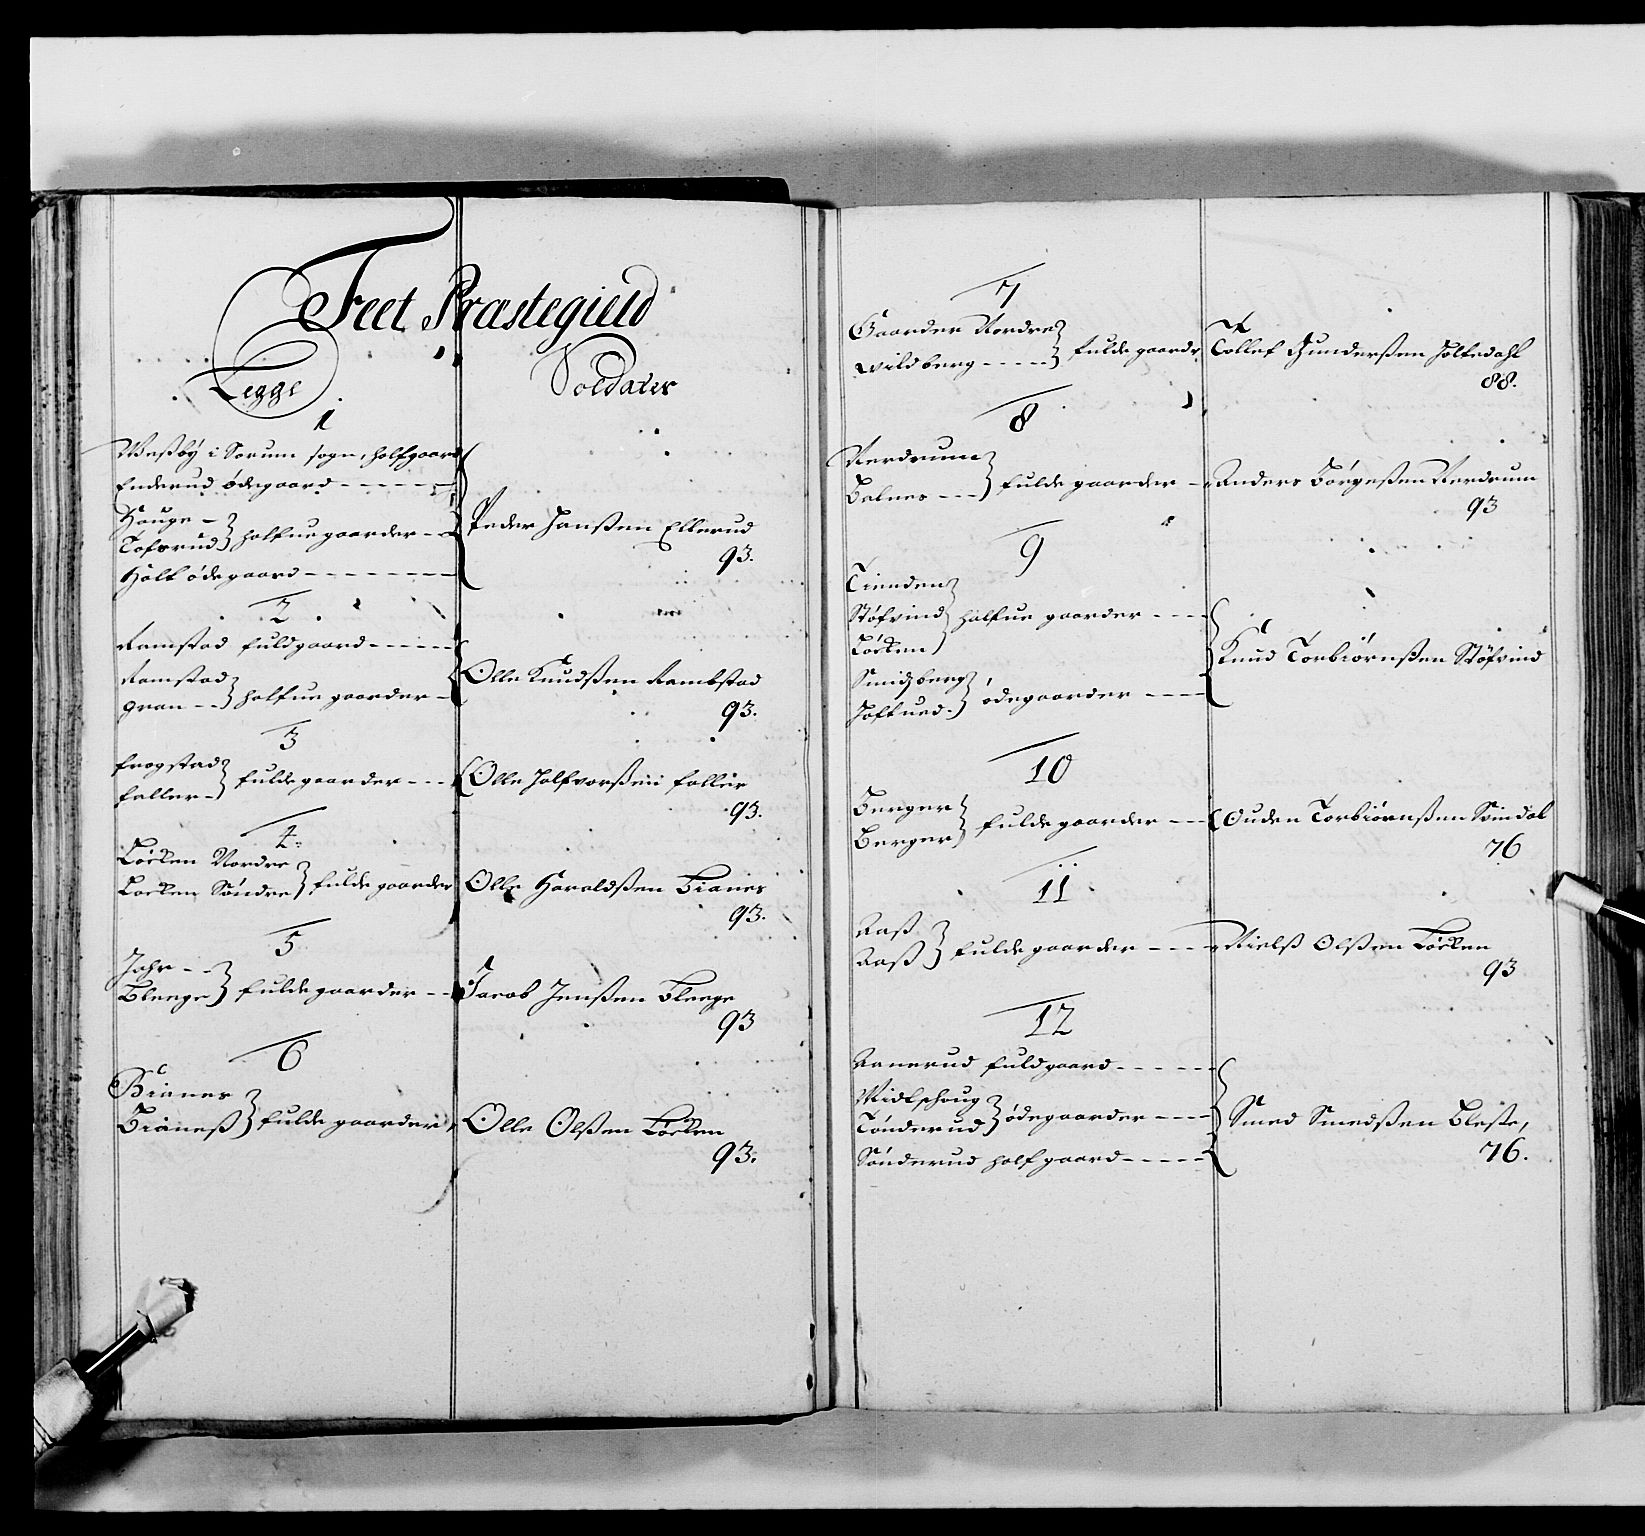 Feet Præstegield
Legge
Soldater
1
Weßbÿ i Sørum sogn, halfgaard
Enderud ødegaard
Hauge
Tofsrud } halfue gaarder
Holt ødegaard
Peder Janßen Ellerud
93.
2
Ramstad fuldgaard
Ramstad
gran } halfue gaarder
Olle Knudßen Rambstad
93.
3
frogstad
faller } fulde gaarder
Olle Halfvorßen faller
93.
4
Løcken Nordre
Løcken Søndre } fulde gaarder
Olle Haraldßen Bianes
93.
5
Jahr
Bleege } fulde gaarder
Jacob Jenßen Bleege
93
6
Bianes
Bianeß } fulde gaarder
Olle Olßen Løcken
93.
7
Gaarder Nordre
Wildberg } fulde gaarder
Tollef Gunderßen Holtedahl
88.
8
Nerdrum
Balnes } fulde gaarder
Anders Børgeßen Nerdrum
93
9
Tienden
Støfvind
Løcken } halfue gaarder
Smidzberg
Hoftued } ødegaarder
Knud Torbiørnßen Støfvind
10
Berger
Berger } fulde gaarder
Ouden Torbiørnßen Svindal
76
11
Aaß
Aaß } fulde gaarder
Nielß Olßen Løcken
93
12
Ranerud fuldgaard
Midtschoug
Tønderud } ødegaarder
Sønderud halfgaard
Smed Smedßen Bleste,
76.